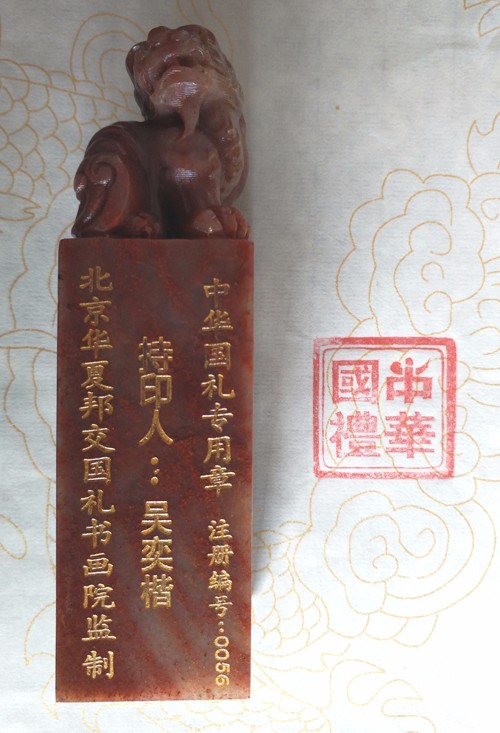 中华国礼专用章 注册编号：0056
持印人：吴奕楷
北京华夏邦交国礼书画院监制
中華
國禮